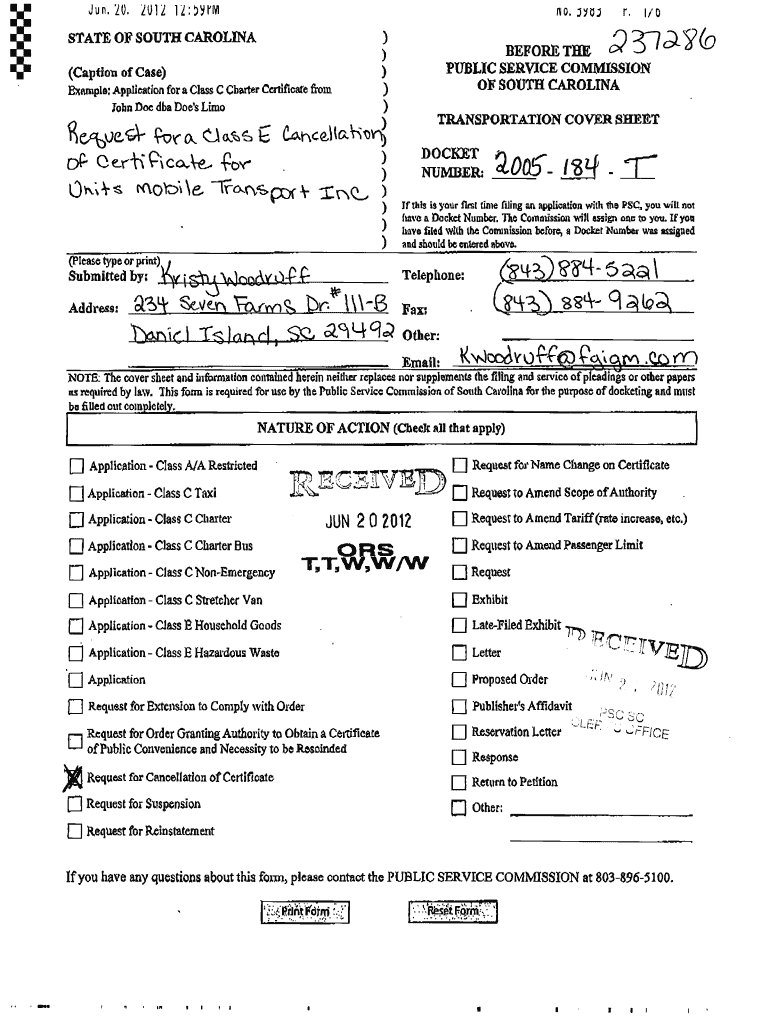 Jun. 20. 2012 12:59PM
No. 3983 P. 1/6
STATE OF SOUTH CAROLINA
(Caption of Case)
Example: Application for a Class C Charter Certificate from
John Doe dba Doe's Limo
Request for a Class E Cancellation
of Certificate for
Units Mobile Transport Inc
)
)
)
)
)
)
)
)
)
)
)
)
)
237286
BEFORE THE
PUBLIC SERVICE COMMISSION
OF SOUTH CAROLINA
TRANSPORTATION COVER SHEET
DOCKET
NUMBER: 2005 - 184 - T
If this is your first time filing an application with the PSC, you will not
have a Docket Number. The Commission will assign one to you. If you
have filed with the Commission before, a Docket Number was assigned
and should be entered above.
(Please type or print)
Submitted by: Kristy Woodruff
Address: 234 Seven Farms Dr. #111-B
Daniel Island, SC 29492
Telephone: (843) 884-5221
Fax: (843) 884-9262
Other:
Email: Kwoodruff@fgigm.com
NOTE: The cover sheet and information contained herein neither replaces nor supplements the filing and service of pleadings or other papers
as required by law. This form is required for use by the Public Service Commission of South Carolina for the purpose of docketing and must
be filled out completely.
NATURE OF ACTION (Check all that apply)
Application - Class A/A Restricted
Application - Class C Taxi
Application - Class C Charter
Application - Class C Charter Bus
Application - Class C Non-Emergency
Application - Class C Stretcher Van
Application - Class E Household Goods
Application - Class E Hazardous Waste
Application
Request for Extension to Comply with Order
Request for Order Granting Authority to Obtain a Certificate
of Public Convenience and Necessity to be Rescinded
X Request for Cancellation of Certificate
Request for Suspension
Request for Reinstatement
RECEIVED
JUN 20 2012
ORS
T,T,W,W/W
Request for Name Change on Certificate
Request to Amend Scope of Authority
Request to Amend Tariff (rate increase, etc.)
Request to Amend Passenger Limit
Request
Exhibit
Late-Filed Exhibit
Letter
Proposed Order
Publisher's Affidavit
Reservation Letter
Response
Return to Petition
Other:
RECEIVED
JUN 2 2012
PSC SC
OFFICE
If you have any questions about this form, please contact the PUBLIC SERVICE COMMISSION at 803-896-5100.
Print Form
Reset Form